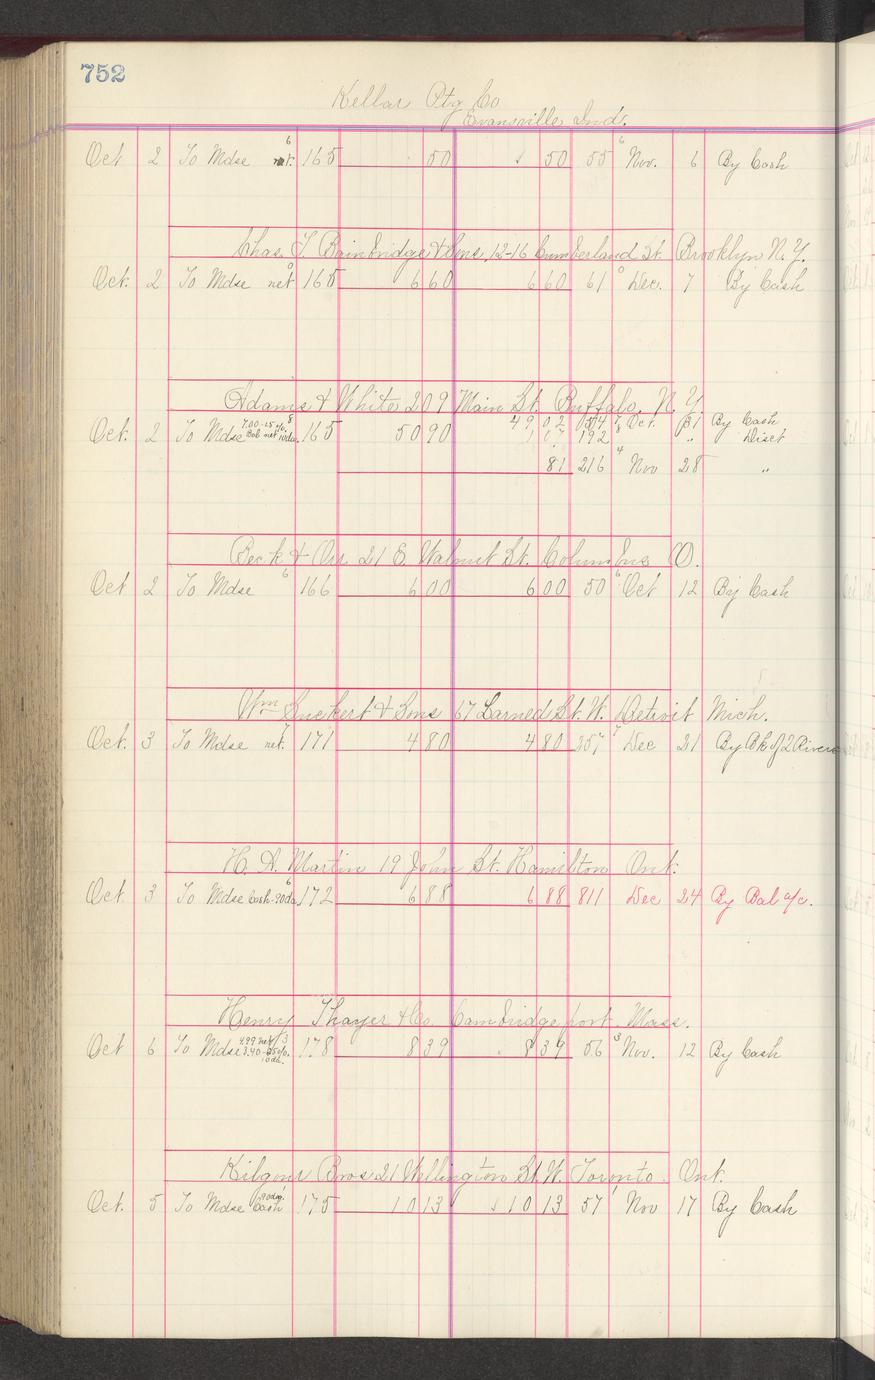 752
Kellar Ptg Co
Evansville, Ind.
Oct 2 To Mdse net. 6 165 50 50 55 6 Nov. 6 By Cash
Chas. T. Bainbridge & Sons, 12-16 Cumberland St. Brooklyn N.Y.
Oct. 2 To Mdse net 165 6 60 6 60 61 Dec. 7 By Cash
Adams & White 209 Main St. Buffalo, N.Y.
Oct. 2 To Mdse 7.00-25%. Bal net 10da. 8 165 50 90 49 02 Oct. 31 By Cash
1 07 192 " Disct
81 216 4 Nov 28 "
Beck & Orr 21 E. Walnut St. Columbus O.
Oct 2 To Mdse 6 166 6 00 6 00 50 6 Oct 12 By Cash
Wm Suckert & Sons 67 Larned St. W. Detroit Mich.
Oct. 3 To Mdse net. 7 171 4 80 4 80 257 7 Dec 21 By Bk of 2 Rivers
H. A. Martin 19 John St. Hamilton Ont.
Oct. 3 To Mdse Cash-90da. 6 172 6 88 6 88 811 Dec 24 By Bal a/c.
Henry Thayer & Co. Cambridgeport, Mass.
Oct 6 To Mdse 4.99 net 3.40-25%. 10da. 3 178 8 39 8 39 56 3 Nov. 12 By Cash
Kilgour Bros 21 Wellington St. W. Toronto. Ont.
Oct. 5 To Mdse 90da. Cash 175 10 13 10 13 57 Nov 17 By Cash